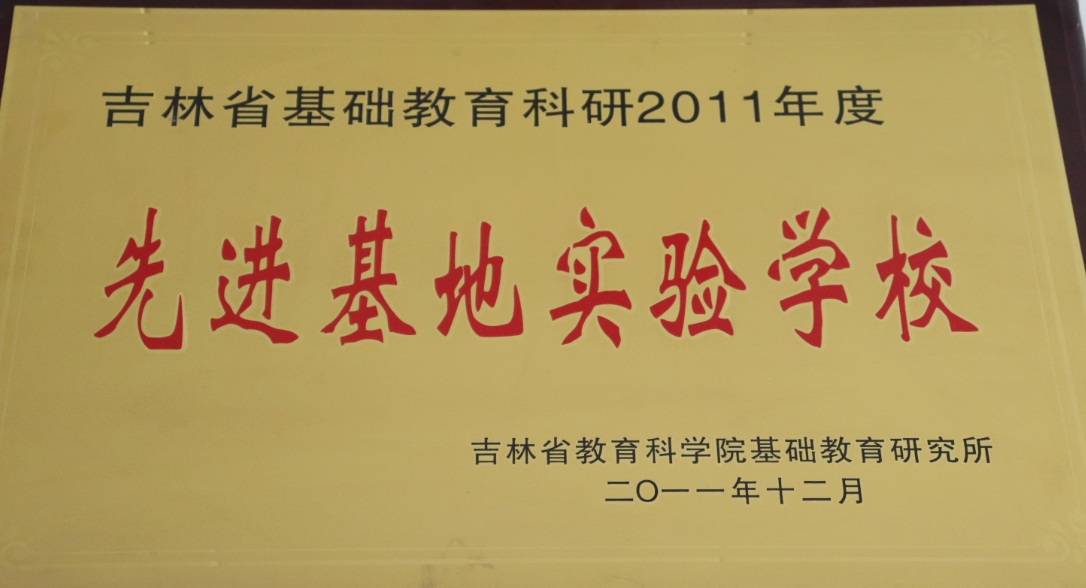 吉林省基础教育科研2011年度
先进基地实验学校
吉林省教育科学院基础教育研究所
二〇一一年十二月